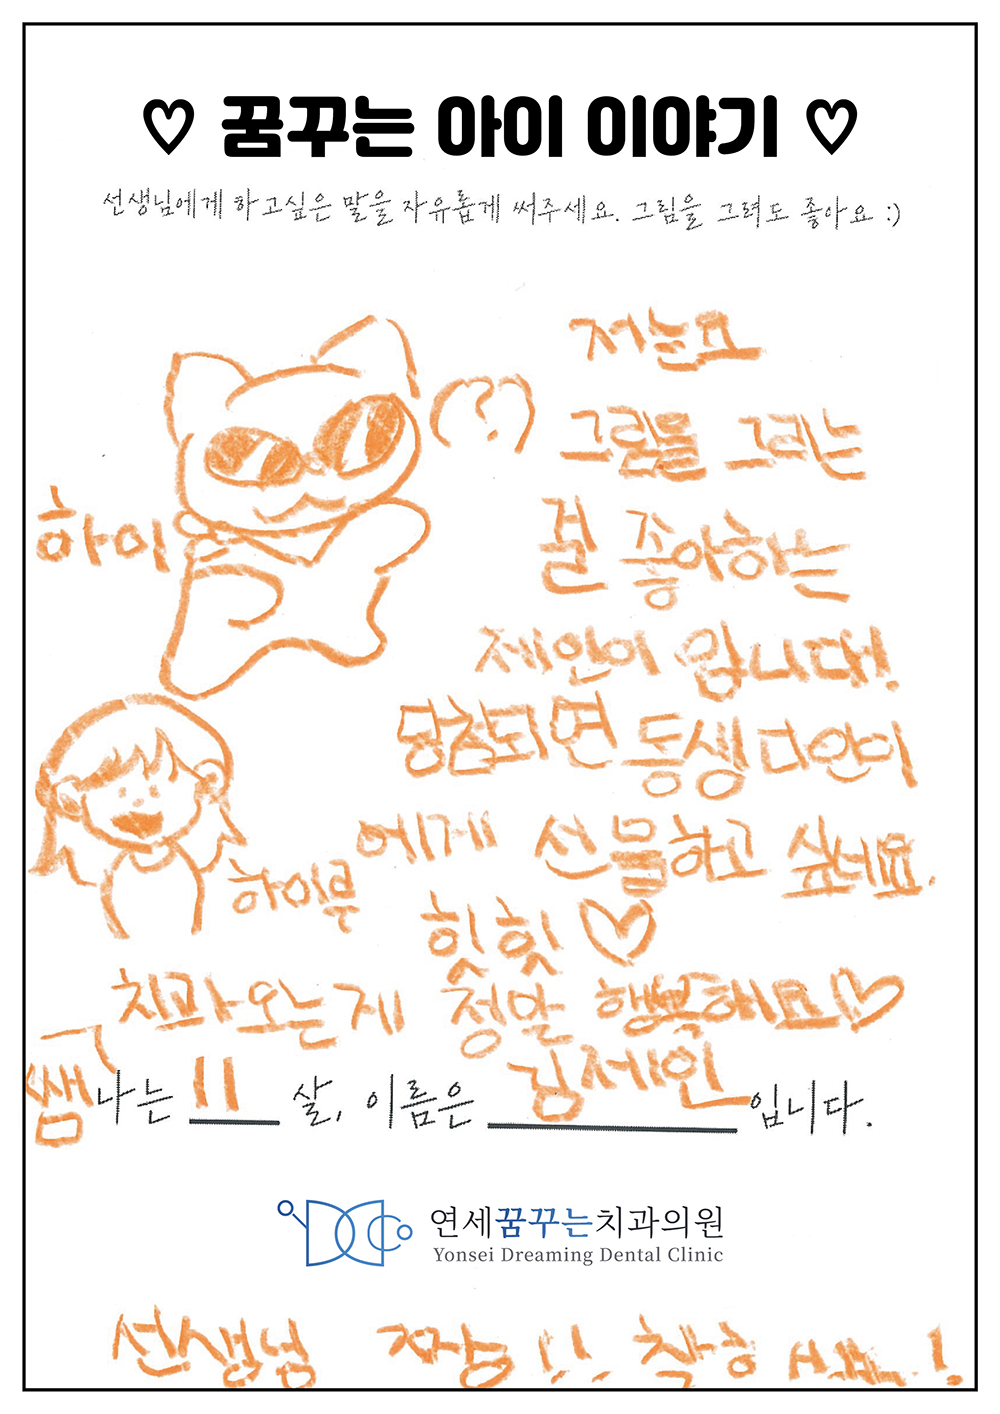 ♡ 꿈꾸는 아이 이야기 ♡
선생님에게 하고싶은 말을 자유롭게 써주세요. 그림을 그려도 좋아요 :)
저는요
(?)
그림을 그리는
하이
걸 좋아하는
제인이 입니다!
당첨되면 동생 다인이
에게 선물하고 싶네요.
하이루
힛힛♡
치과 오는게 정말 행복해요!♡
쌤
나는 11 살, 이름은 김제인 입니다.
연세꿈꾸는치과의원
Yonsei Dreaming Dental Clinic
선생님 짱!! 착하